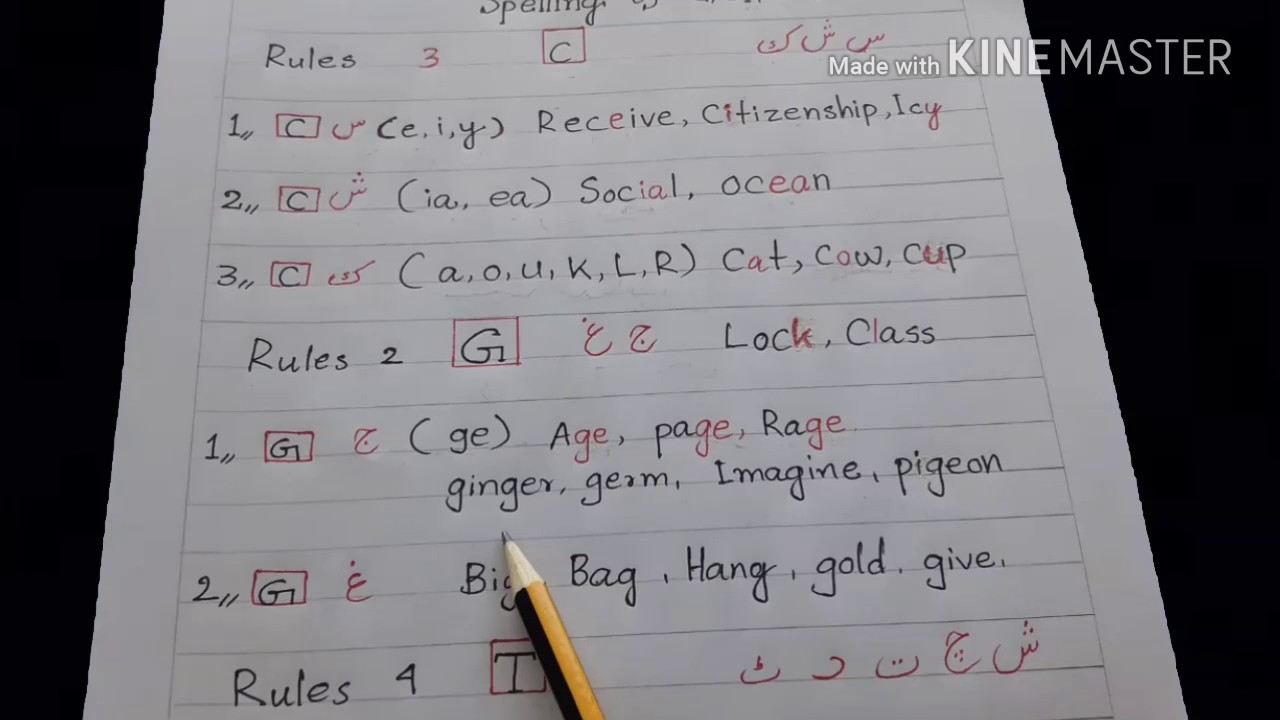 Spelling
Rules 3 C س ش ک
Made with KINEMASTER
1,, C س (e, i, y) Receive, Citizenship, Icy
2,, C ش (ia, ea) Social, ocean
3,, C ک (a, o, u, K, L, R) Cat, Cow, Cup
Rules 2 G ج غ Lock, Class
1,, G ج (ge) Age, page, Rage
ginger, germ, Imagine, pigeon
2,, G غ Big, Bag, Hang, gold, give.
Rules 4 T ش چ ت د ٹ